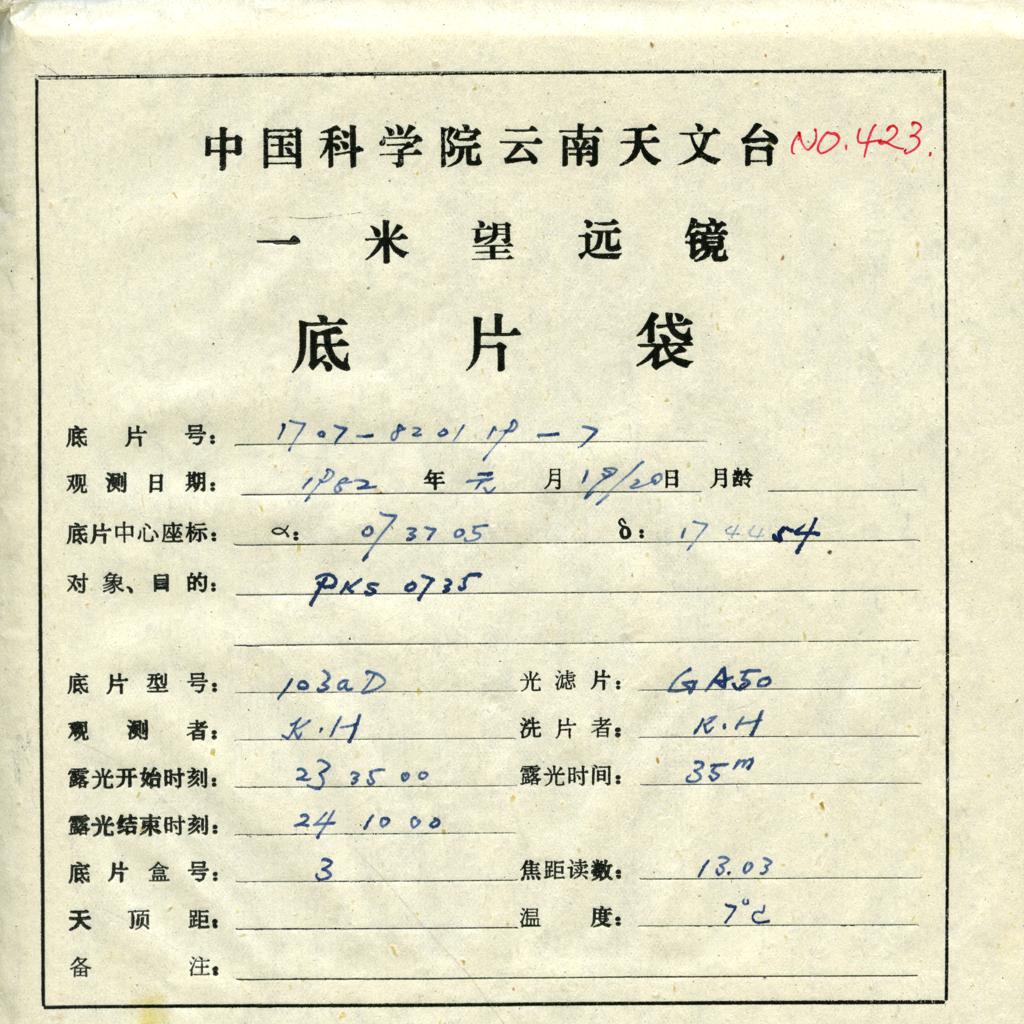 中国科学院云南天文台 NO.423.
一米望远镜
底片袋
底片号: 1707-820119-7
观测日期: 1982 年 元 月 19/20 日 月龄
底片中心座标: α: 07 37 05 δ: 17 44 54
对象、目的: PKS 0735
底片型号: 103aD 光滤片: GA50
观测者: K.H 洗片者: K.H
露光开始时刻: 23 35 00 露光时间: 35m
露光结束时刻: 24 10 00
底片盒号: 3 焦距读数: 13.03
天顶距: 温度: 7°C
备注: